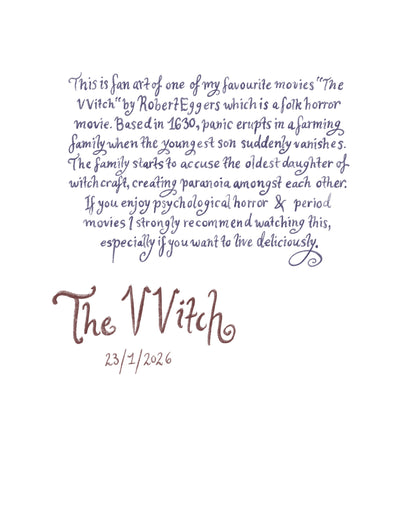 This is fan art of one of my favourite movies "The
VVitch" by Robert Eggers which is a folk horror
movie. Based in 1630, panic erupts in a farming
family when the youngest son suddenly vanishes.
The family starts to accuse the oldest daughter of
witchcraft, creating paranoia amongst each other.
If you enjoy psychological horror & period
movies I strongly recommend watching this,
especially if you want to live deliciously.
The VVitch
23/1/2026